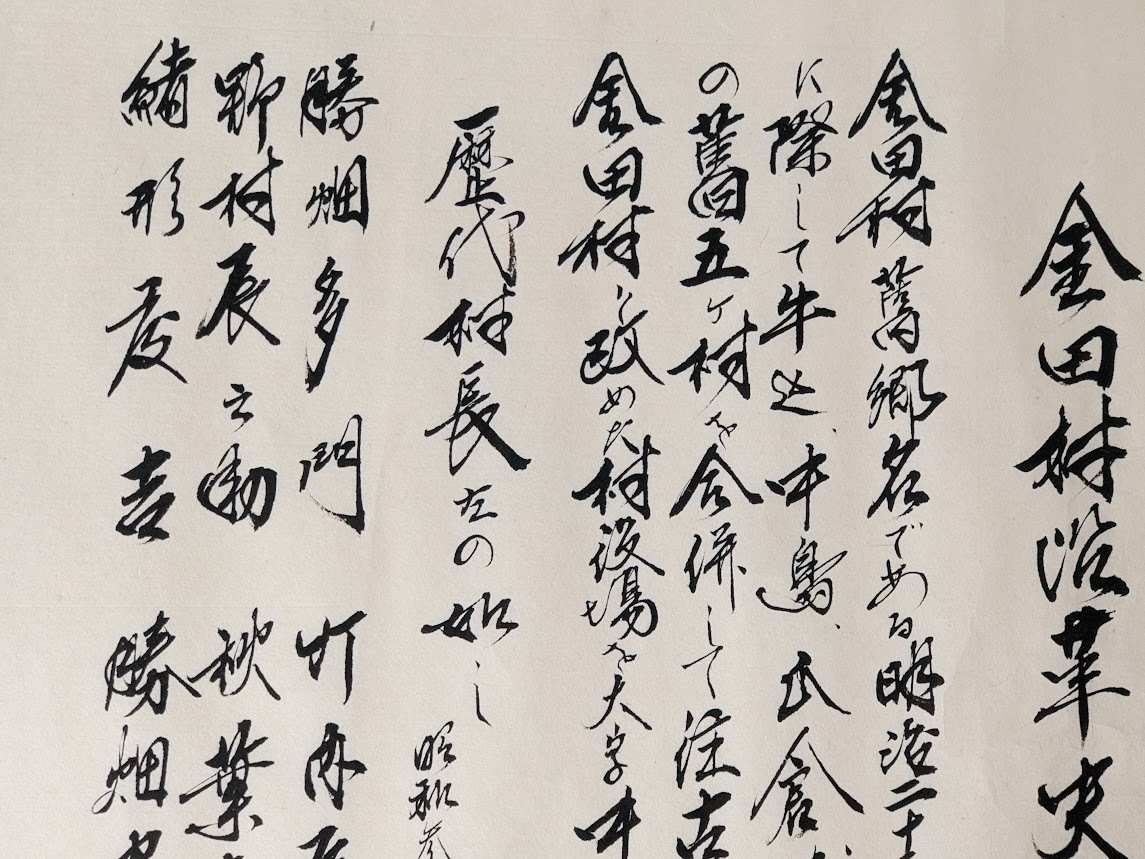 金田村沿革史
金田村舊郷名である明治二十
に際して牛込、中島、瓜倉
の舊五ヶ村を合併して深古
金田村と改めた村役場を大字中
歴代村長左の如し
昭和参
勝畑多門 竹内
野村辰之助 秋葉
緒形彦吉 勝畑